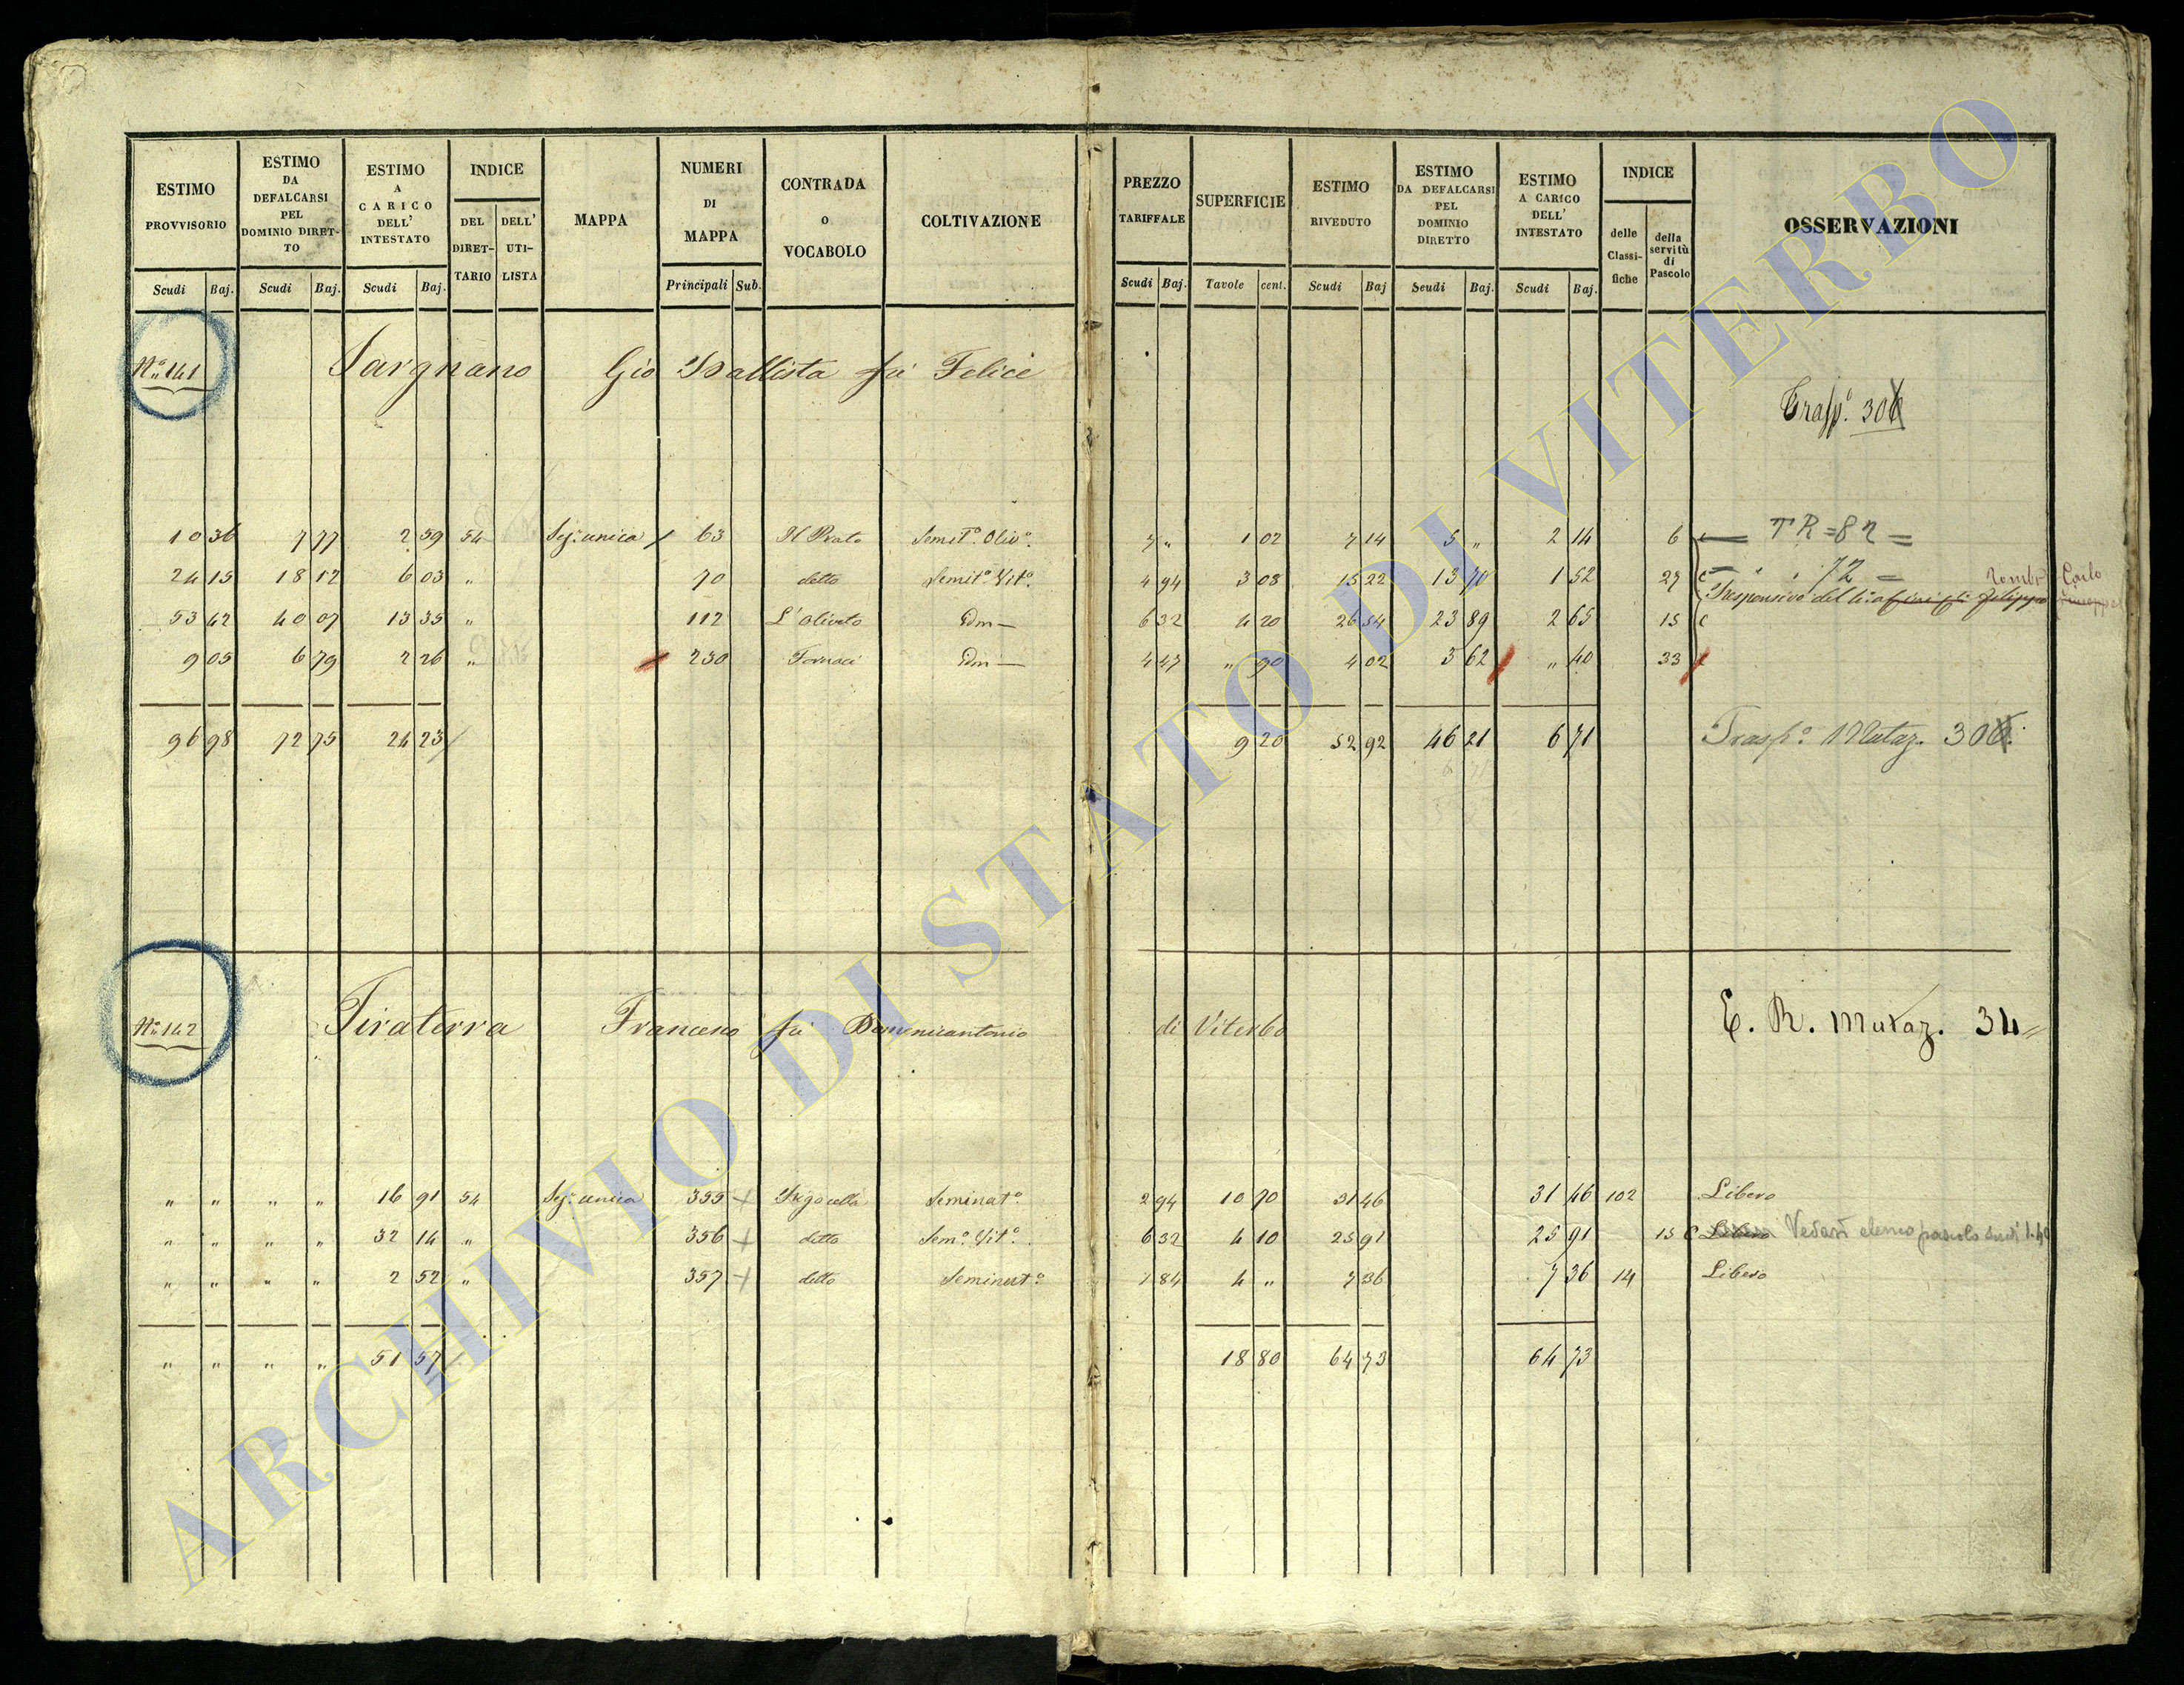 ESTIMO PROVVISORIO | ESTIMO DA DEFALCARSI PEL DOMINIO DIRETTO | ESTIMO A CARICO DELL' INTESTATO | INDICE | MAPPA | NUMERI DI MAPPA | CONTRADA o VOCABOLO | COLTIVAZIONE | PREZZO TARIFFALE | SUPERFICIE | ESTIMO RIVEDUTO | ESTIMO DA DEFALCARSI PEL DOMINIO DIRETTO | ESTIMO A CARICO DELL' INTESTATO | INDICE | OSSERVAZIONI
DEL DIRETTARIO | DELL' UTILISTA | delle Classifiche | della servitù di Pascolo
Scudi | Baj. | Scudi | Baj. | Scudi | Baj. | Principali | Sub. | Scudi | Baj. | Tavole | cent. | Scudi | Baj | Scudi | Baj. | Scudi | Baj.
N.° 141 Sargnano Gio Battista fu Felice
Trasp.° 306
10 36 7 77 2 59 54 Sez: unica 63 Il Prato Semit.° Oliv.° 7 „ 1 02 7 14 5 „ 2 14 6 TR = 82 =
24 15 18 12 6 03 „ 70 detto Semit.° Vit.° 4 94 3 08 15 22 13 70 1 52 27 „ „ 72 =
Carlo
53 42 40 07 13 35 „ 112 L'Oliveto Idm — 6 32 4 20 26 54 23 89 2 65 15
9 05 6 79 2 26 „ 230 Fornaci Idm — 4 47 „ 90 4 02 3 62 „ 40 33
96 98 72 75 24 23 9 20 52 92 46 21 6 71 Trasp.° Mutaz. 306
N.° 142 Tiraterra Francesco fu Domenicantonio di Viterbo E. R. Mutaz. 34
„ „ „ „ 16 91 54 Sez: unica 355 Seminat.° 2 94 10 70 31 46 31 46 102 Libero
„ „ „ „ 32 14 „ 356 detto Sem.° Vit.° 6 32 4 10 25 91 25 91 15 Libero Vedasi elenco pascolo Scudi 1.40
„ „ „ „ 2 52 „ 357 detto Seminat.° 1 84 4 „ 7 36 7 36 14 Libero
„ „ „ „ 51 57 18 80 64 73 64 73
ARCHIVIO DI STATO DI VITERBO